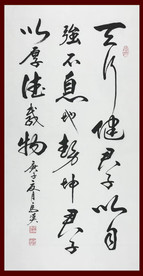 天行健君子以自
強不息地勢坤君子
以厚德載物 庚子